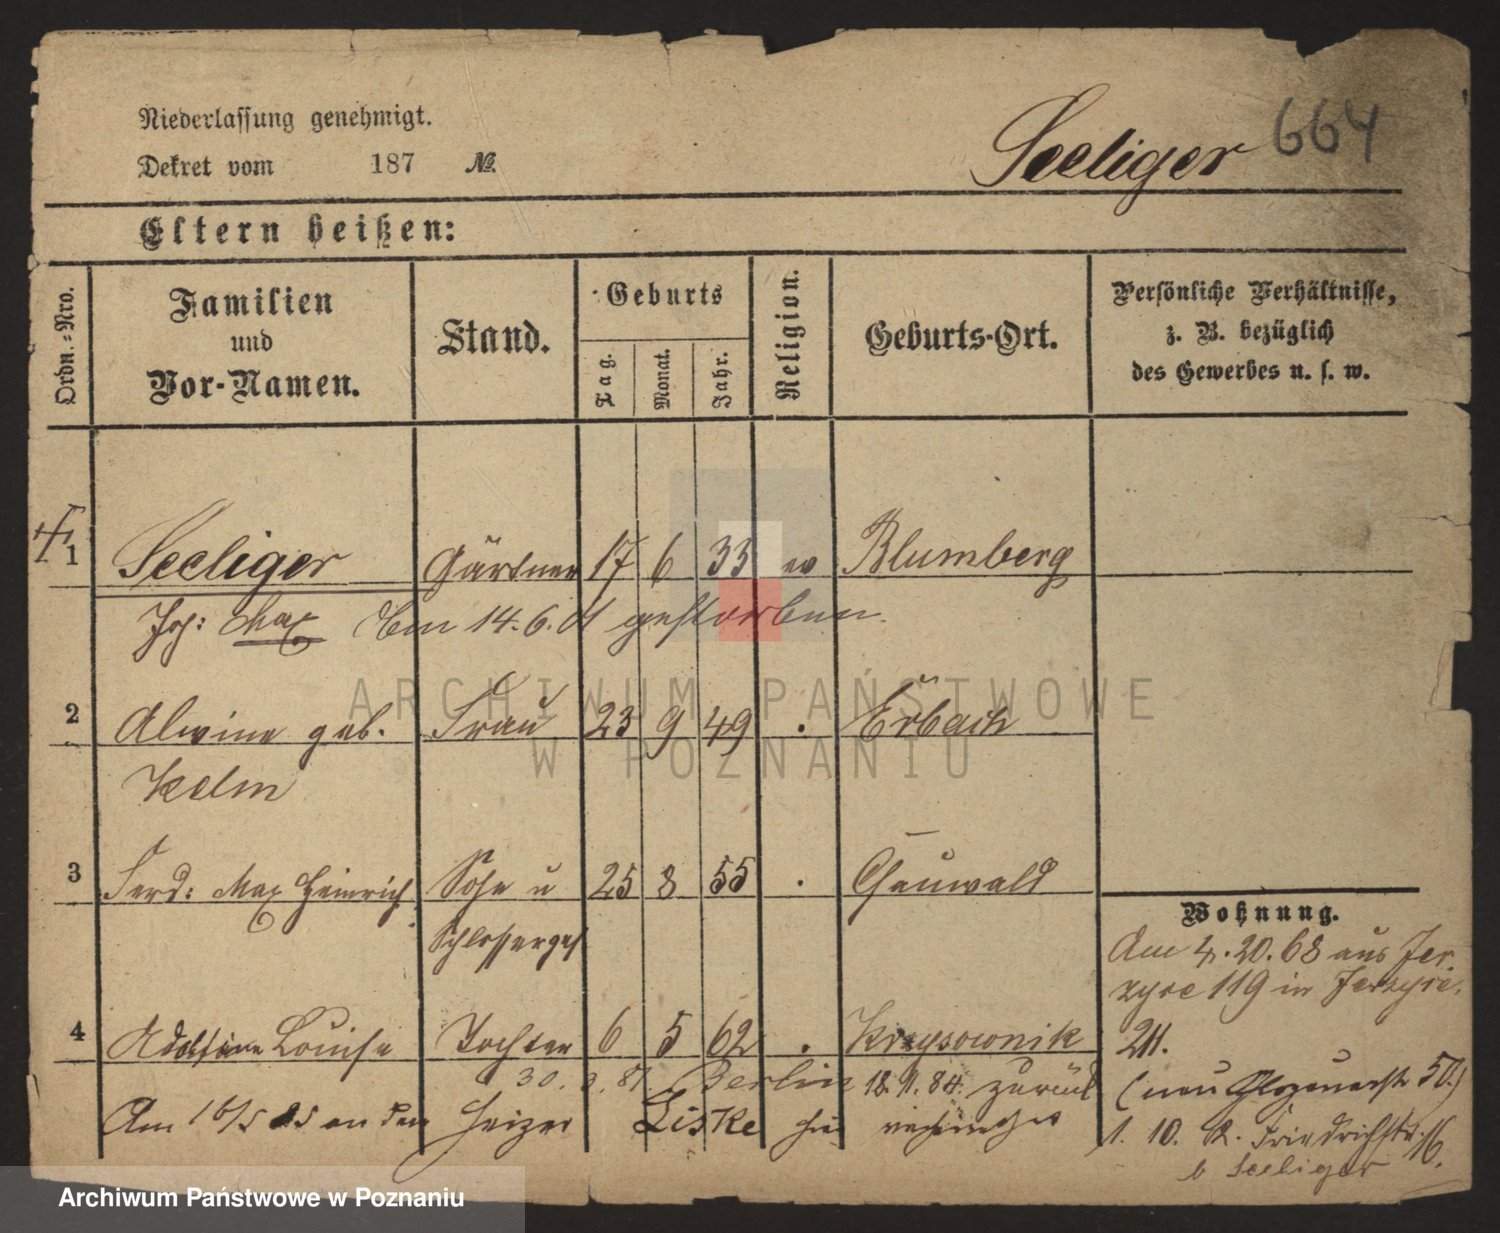 Niederlassung genehmigt.
Dekret vom 187 №
Seeliger 664
Eltern heißen:
Ordn.=Nro.
Familien und Vor-Namen.
Stand.
Geburts
Tag. Monat. Jahr.
Religion.
Geburts-Ort.
Persönliche Verhältnisse,
z. B. bezüglich
des Gewerbes u. s. w.
1 Seeliger Gärtner 17 6 33 ev Blumberg
Joh: Max Am 14. 6. 01 gestorben.
2 Alwine geb. Frau 23 9 49 Erbach
Kelm
3 Ferd: Max Heinrich Sohn u 25 8 55
Schlosserges
4 Louise Tochter 6 5 62
30. 3. 81. Berlin 18. 9. 84. zurück
Am 16/5 85 an den Heizer Liske hier
Wohnung.
Am 4. 20. 68 aus Jer
zyce 119 in Jerzyce.
211.
(neu 50.)
1. 10. Friedrichstr. 16.
b Seeliger
ARCHIWUM PAŃSTWOWE
W POZNANIU
Archiwum Państwowe w Poznaniu